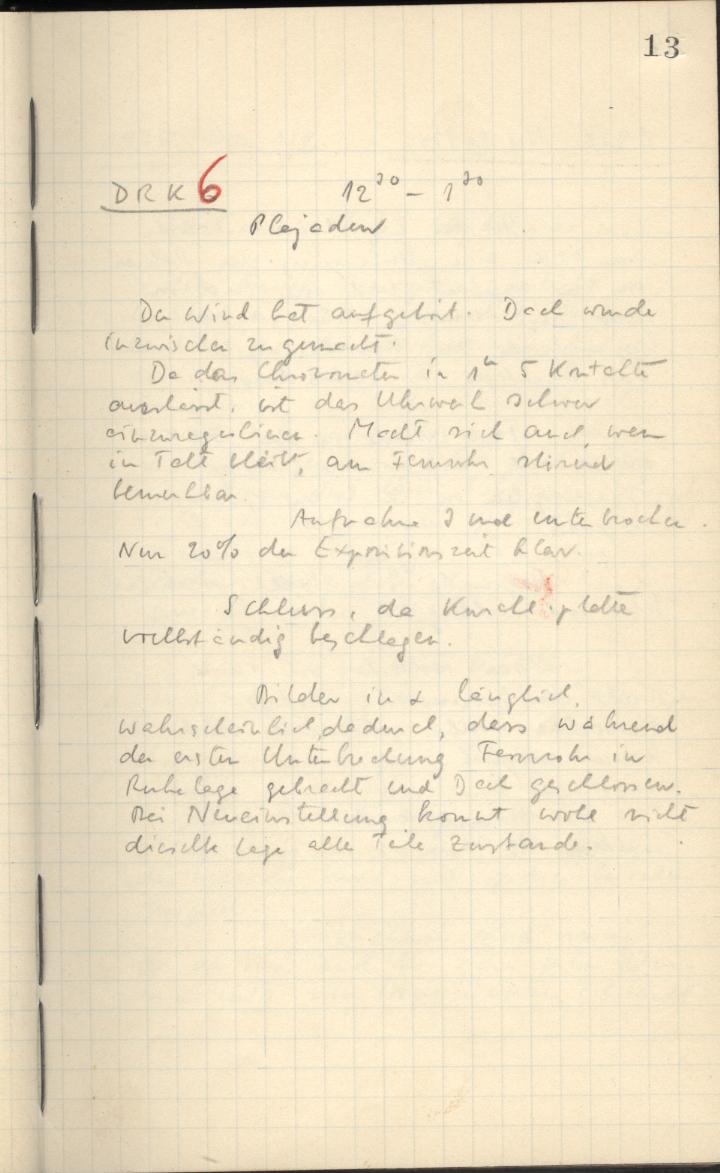 13
DRK 6 12³⁰ – 1³⁰
Plejaden
Der Wind hat aufgehört. Dach wurde
inzwischen zugemacht.
Da das Chronometer in 1ᵐ 5 Kontakte
auslässt, ist das Uhrwerk schwer
einzuregulieren. Macht sich auch, wenn
in Takt bleibt, am Fernrohr störend
bemerkbar.
Aufnahme 3 mal unterbrochen.
Nur 20% der Expositionszeit klar.
Schluss, da platte
vollständig beschlagen.
Bilder in α länglich,
wahrscheinlich dadurch, dass während
der ersten Unterbrechung Fernrohr in
Ruhelage gebracht und Dach geschlossen.
Bei Neueinstellung kommt wohl nicht
dieselbe Lage aller Teile zustande.